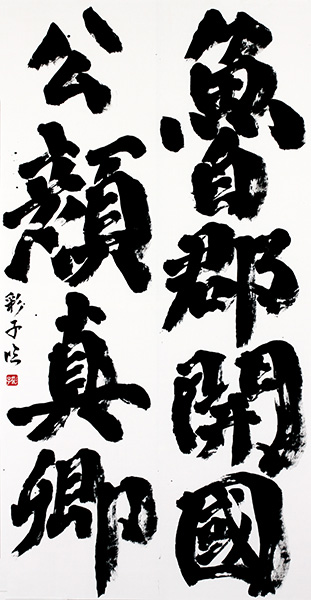 魯郡開國
公顏真卿
彩子臨